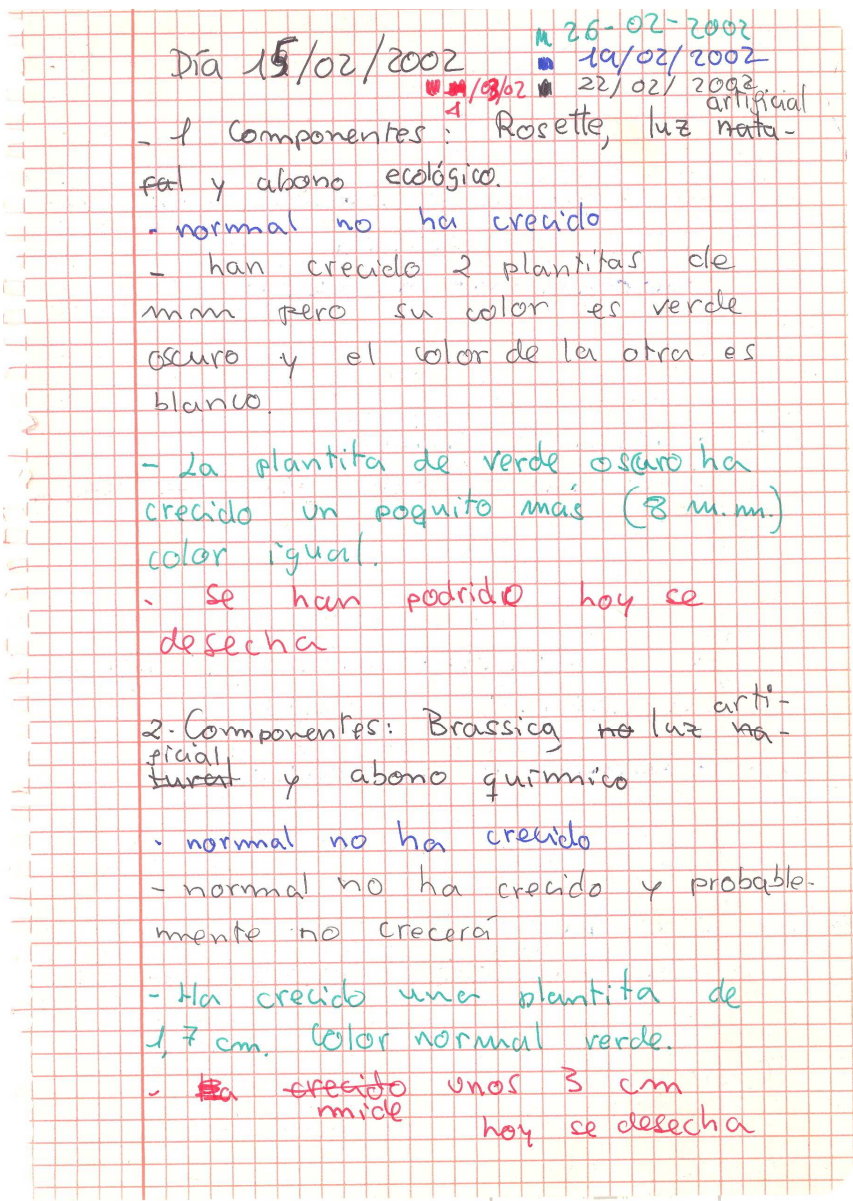 26-02-2002
Día 15/02/2002
19/02/2002
/03/02
22/02/2002
1
artificial
- 1 Componentes: Rosette, luz natu-
ral y abono ecológico.
- normal no ha crecido
- han crecido 2 plantitas de
mm pero su color es verde
oscuro y el color de la otra es
blanco.
- La plantita de verde oscuro ha
crecido un poquito más (8 m.m.)
color igual.
- se han podrido hoy se
desecha
arti-
2. Componentes: Brassica no luz na-
ficial
tural y abono químico
- normal no ha crecido
- normal no ha crecido y probable-
mente no crecerá
- Ha crecido una plantita de
1,7 cm. Color normal verde.
- Ha crecido unos 3 cm
mide
hoy se desecha